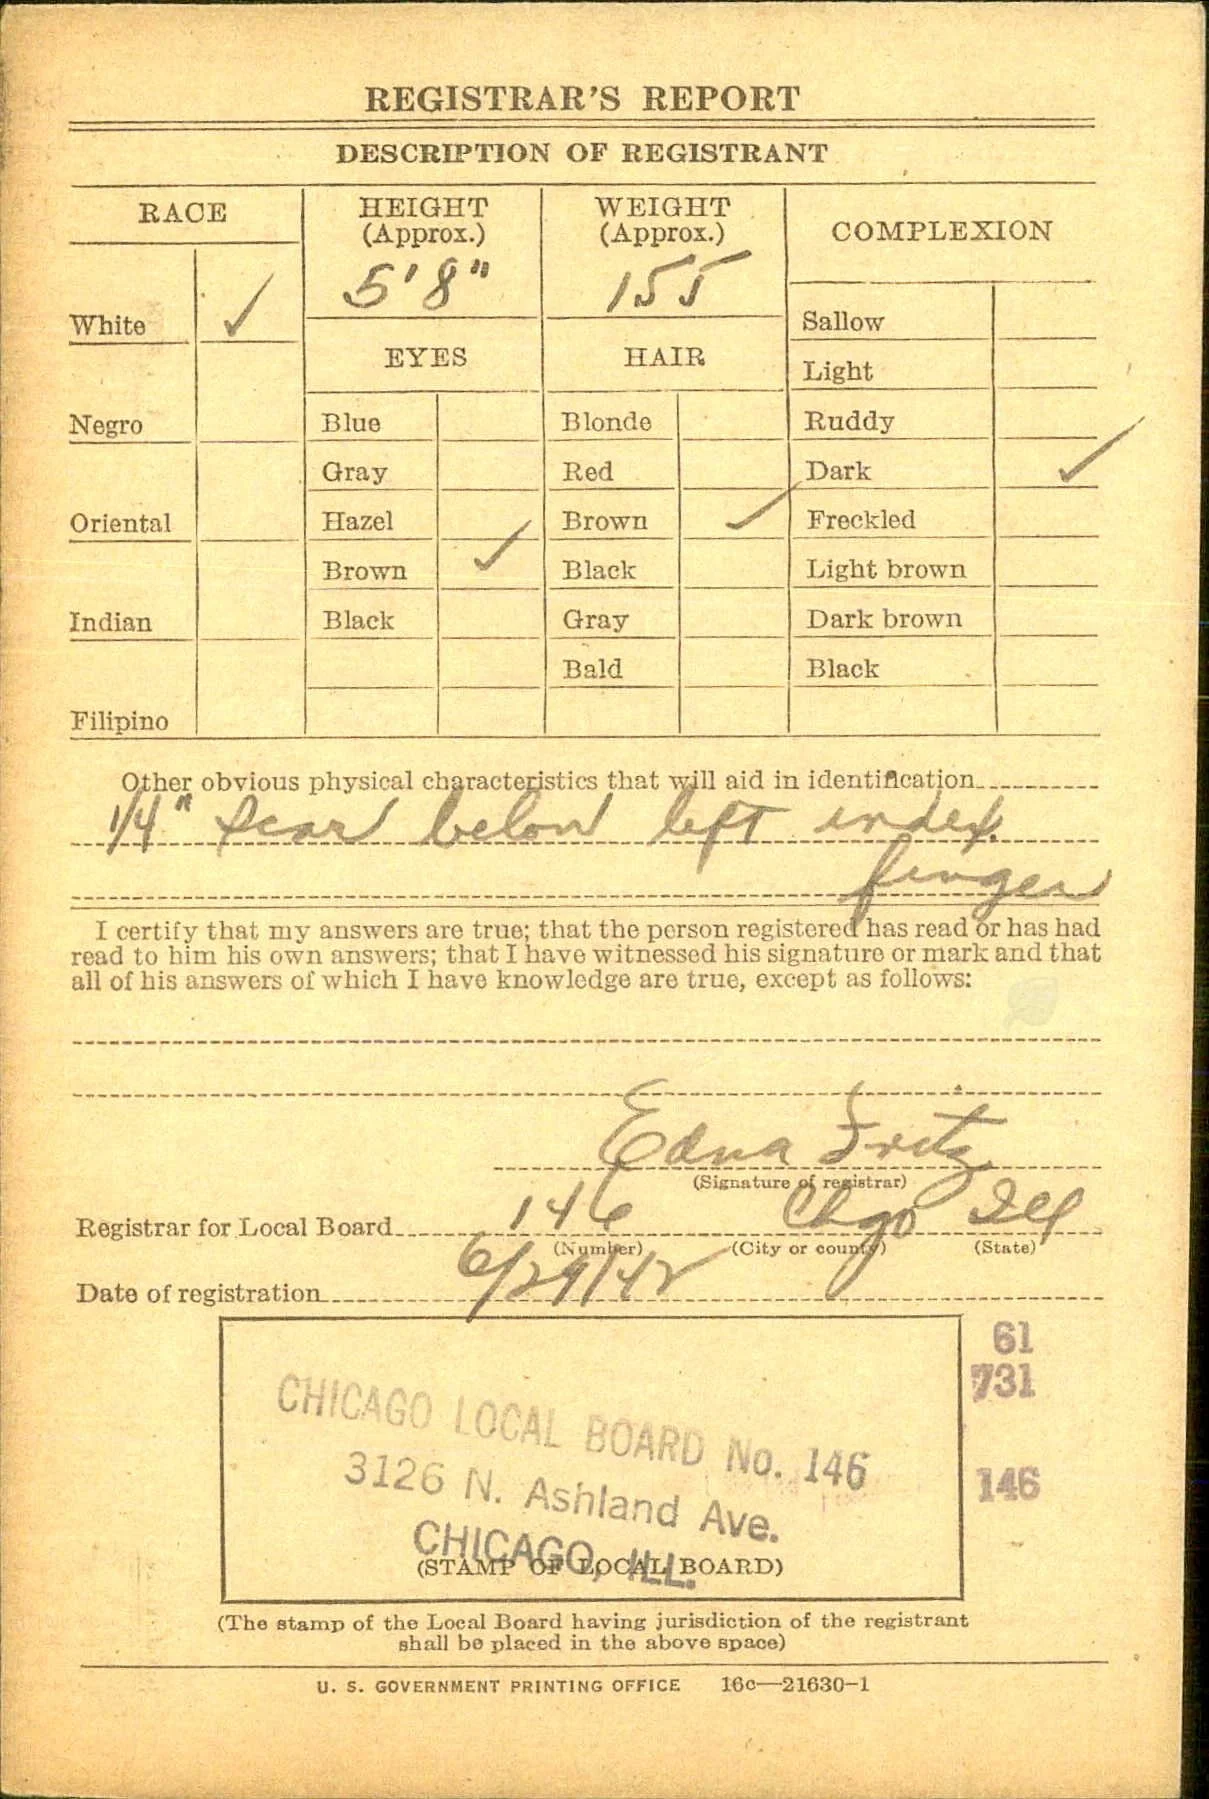 REGISTRAR'S REPORT
DESCRIPTION OF REGISTRANT
RACE
HEIGHT
(Approx.)
5' 8"
WEIGHT
(Approx.)
155
COMPLEXION
White ✓
Negro
Oriental
Indian
Filipino
EYES
Blue
Gray
Hazel
Brown ✓
Black
HAIR
Blonde
Red
Brown ✓
Black
Gray
Bald
Sallow
Light
Ruddy
Dark ✓
Freckled
Light brown
Dark brown
Black
Other obvious physical characteristics that will aid in identification
1/4" scar below left index
finger
I certify that my answers are true; that the person registered has read or has had
read to him his own answers; that I have witnessed his signature or mark and that
all of his answers of which I have knowledge are true, except as follows:
Edna Fritz
(Signature of registrar)
Registrar for Local Board 146 Chgo Ill
(Number) (City or county) (State)
Date of registration 6/29/42
61
731
146
CHICAGO LOCAL BOARD No. 146
3126 N. Ashland Ave.
CHICAGO, ILL.
(STAMP OF LOCAL BOARD)
(The stamp of the Local Board having jurisdiction of the registrant
shall be placed in the above space)
U. S. GOVERNMENT PRINTING OFFICE 16c—21630-1